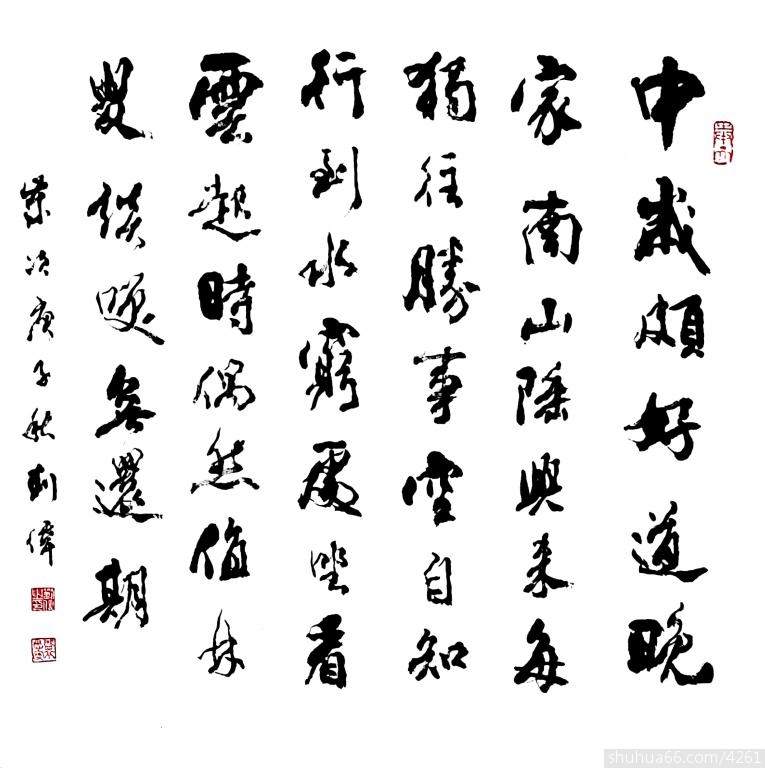 中歲頗好道晚
家南山陲興來每
獨往勝事空自知
行到水窮處坐看
雲起時偶然值林
叟談咲無還期
歲次庚子秋刘偉
shuhua66.com/4261